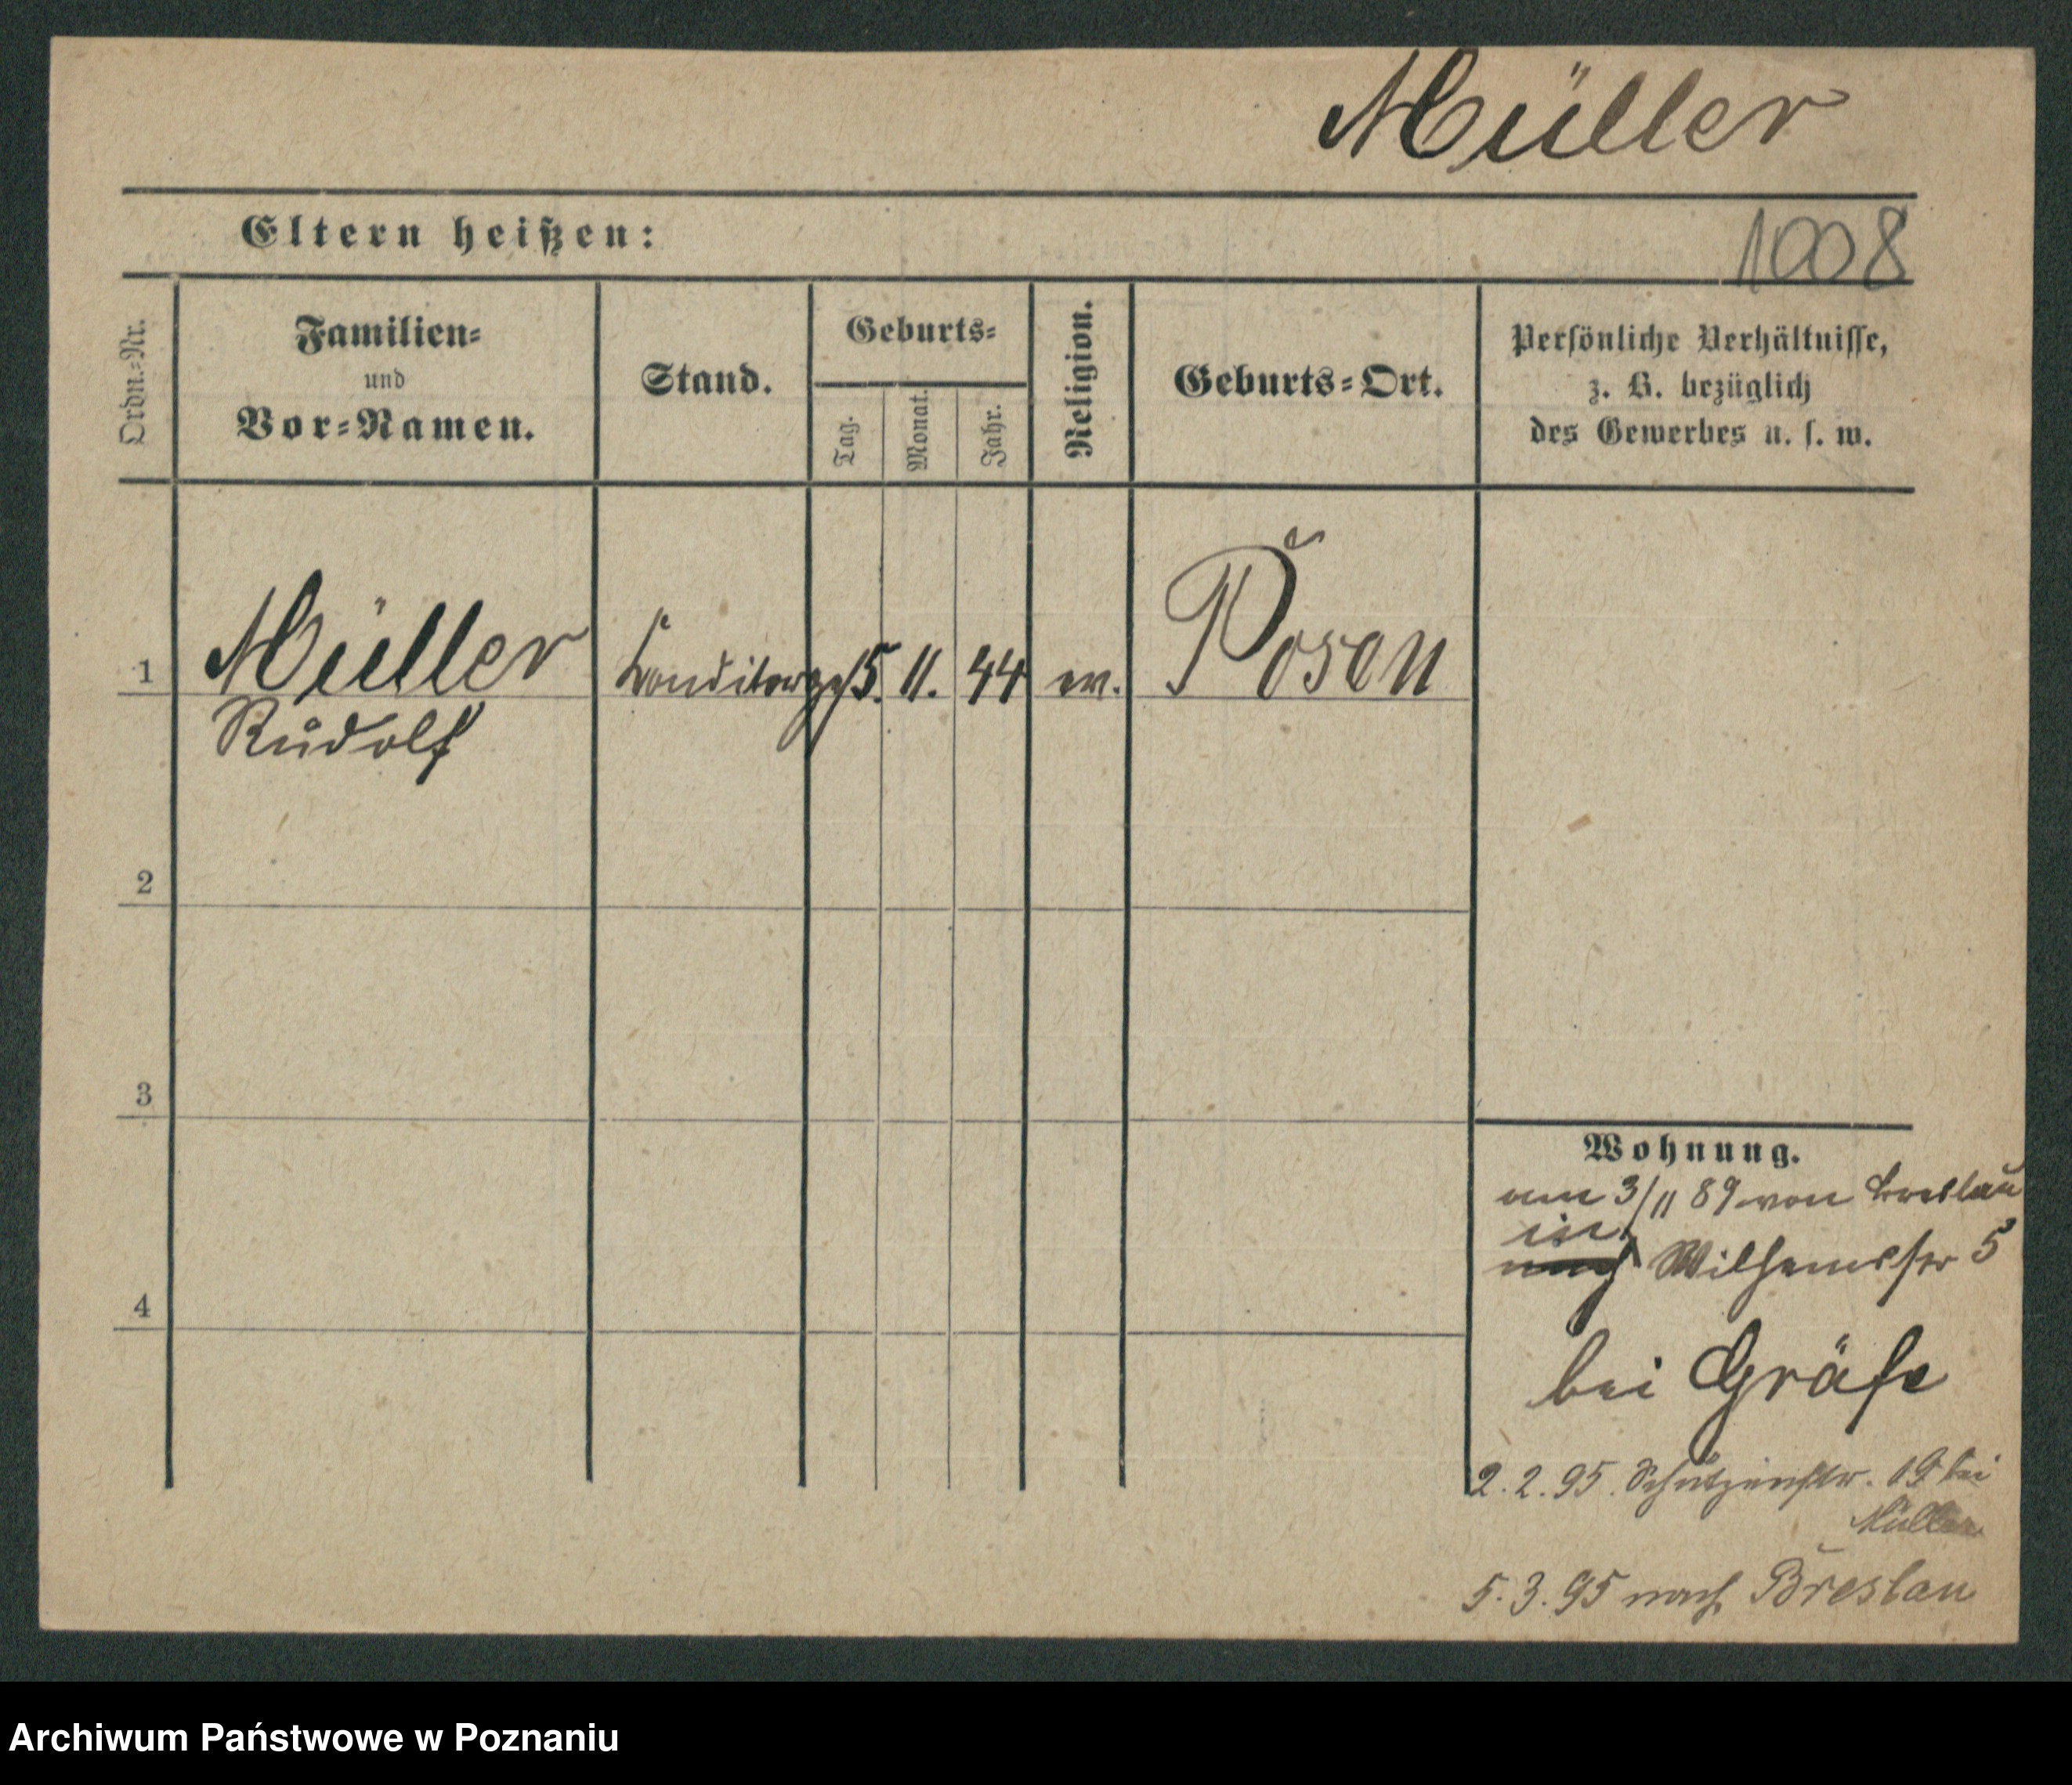 Müller
Eltern heißen:
1008
Ordn.=Nr.
Familien=
und
Vor=Namen.
Stand.
Geburts=
Tag.
Monat.
Jahr.
Religion.
Geburts=Ort.
Persönliche Verhältnisse,
z. B. bezüglich
des Gewerbes u. s. w.
1
Müller
Rudolf
Conditorge
15. 11. 44
ev.
Posen
2
3
4
Wohnung.
am 3/11 89 von Breslau
in
nach Wilhemsstr 5
bei Gräfe
2.2.95. Schützenstr. 19 bei
Müller
5.3.95 nach Breslau
Archiwum Państwowe w Poznaniu